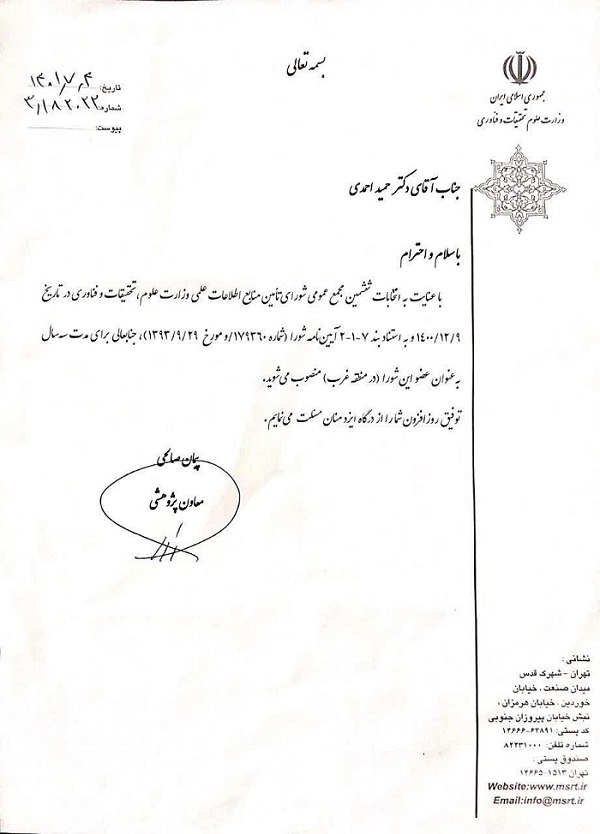 بسمه تعالی
جمهوری اسلامی ایران
وزارت علوم تحقیقات و فناوری
تاریخ: ۱۴۰۱٫۷٫۴
شماره: ۳٫۱۸۲۰۲۲
پیوست:
جناب آقای دکتر حمید احمدی
با سلام و احترام
با عنایت به انتخابات ششمین مجمع عمومی شورای تأمین منابع اطلاعات علمی وزارت علوم، تحقیقات و فناوری در تاریخ
۱۴۰۰/۱۲/۹ و به استناد بند ۷-۱-۲ آیین‌نامه شورا (شماره ۱۷۹۳۶۰/و مورخ ۱۳۹۳/۹/۲۹)، جنابعالی برای مدت سه سال
به عنوان عضو این شورا (در منقطه غرب) منصوب می‌شوید.
توفیق روزافزون شما را از درگاه ایزد منان مسئلت می‌نمایم.
پیمان صالحی
معاون پژوهشی
نشانی:
تهران - شهرک قدس
میدان صنعت، خیابان
خوردین، خیابان هرمزان،
نبش خیابان پیروزان جنوبی
کد پستی: ۶۳۸۹۱-۱۴۶۶۶
شماره تلفن: ۸۲۲۳۱۰۰۰
صندوق پستی:
تهران ۱۵۱۳-۱۴۶۶۵
Website:www.msrt.ir
Email:info@msrt.ir